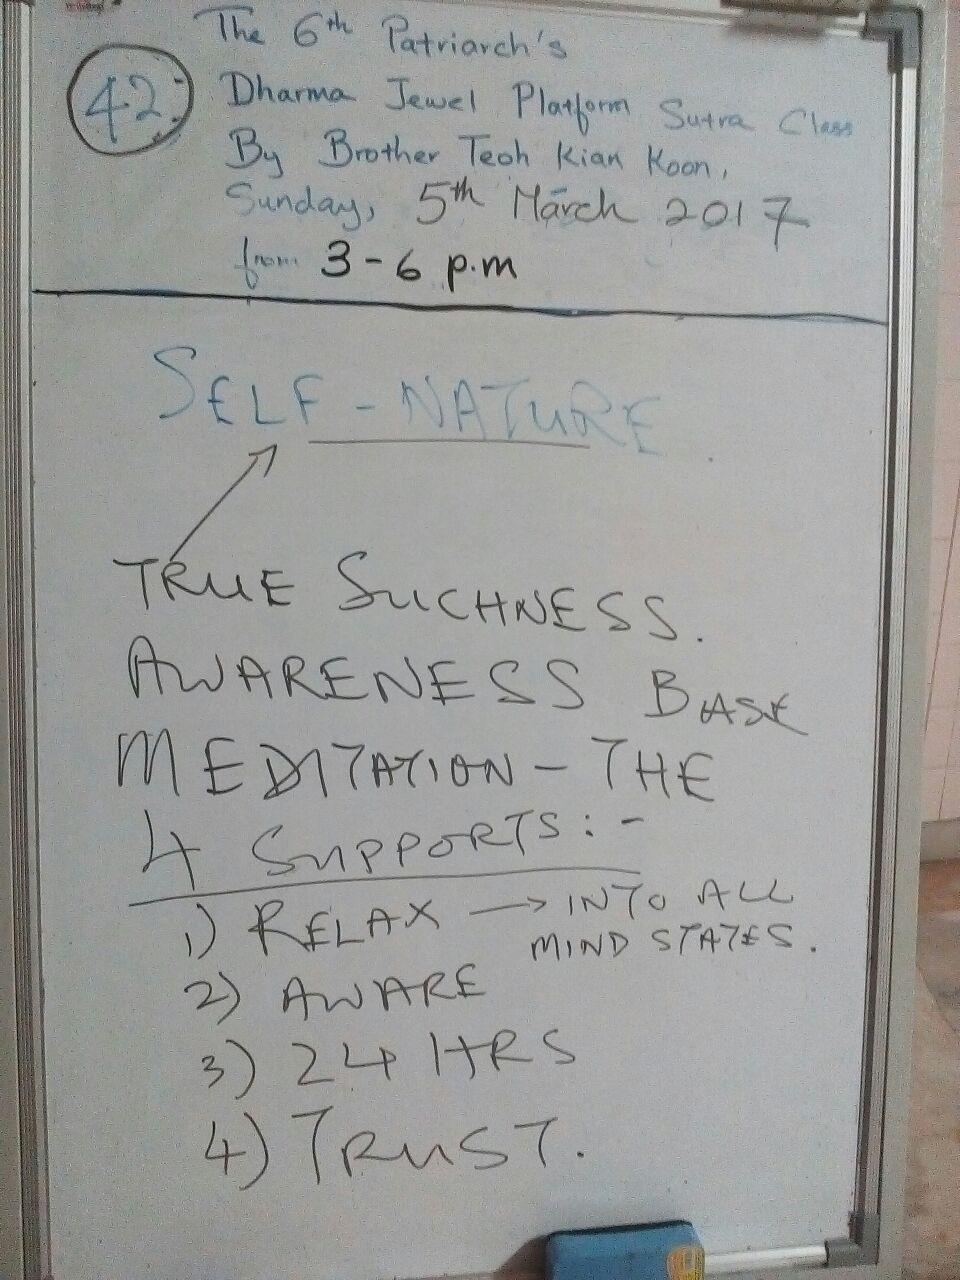 The 6th Patriarch's
42
Dharma Jewel Platform Sutra Class
By Brother Teoh Kian Koon,
Sunday, 5th March 2017
from 3-6 p.m
SELF-NATURE.
TRUE SUCHNESS.
AWARENESS BASE
MEDITATION - THE
4 SUPPORTS:-
1) RELAX → INTO ALL
MIND STATES.
2) AWARE
3) 24 HRS
4) TRUST.